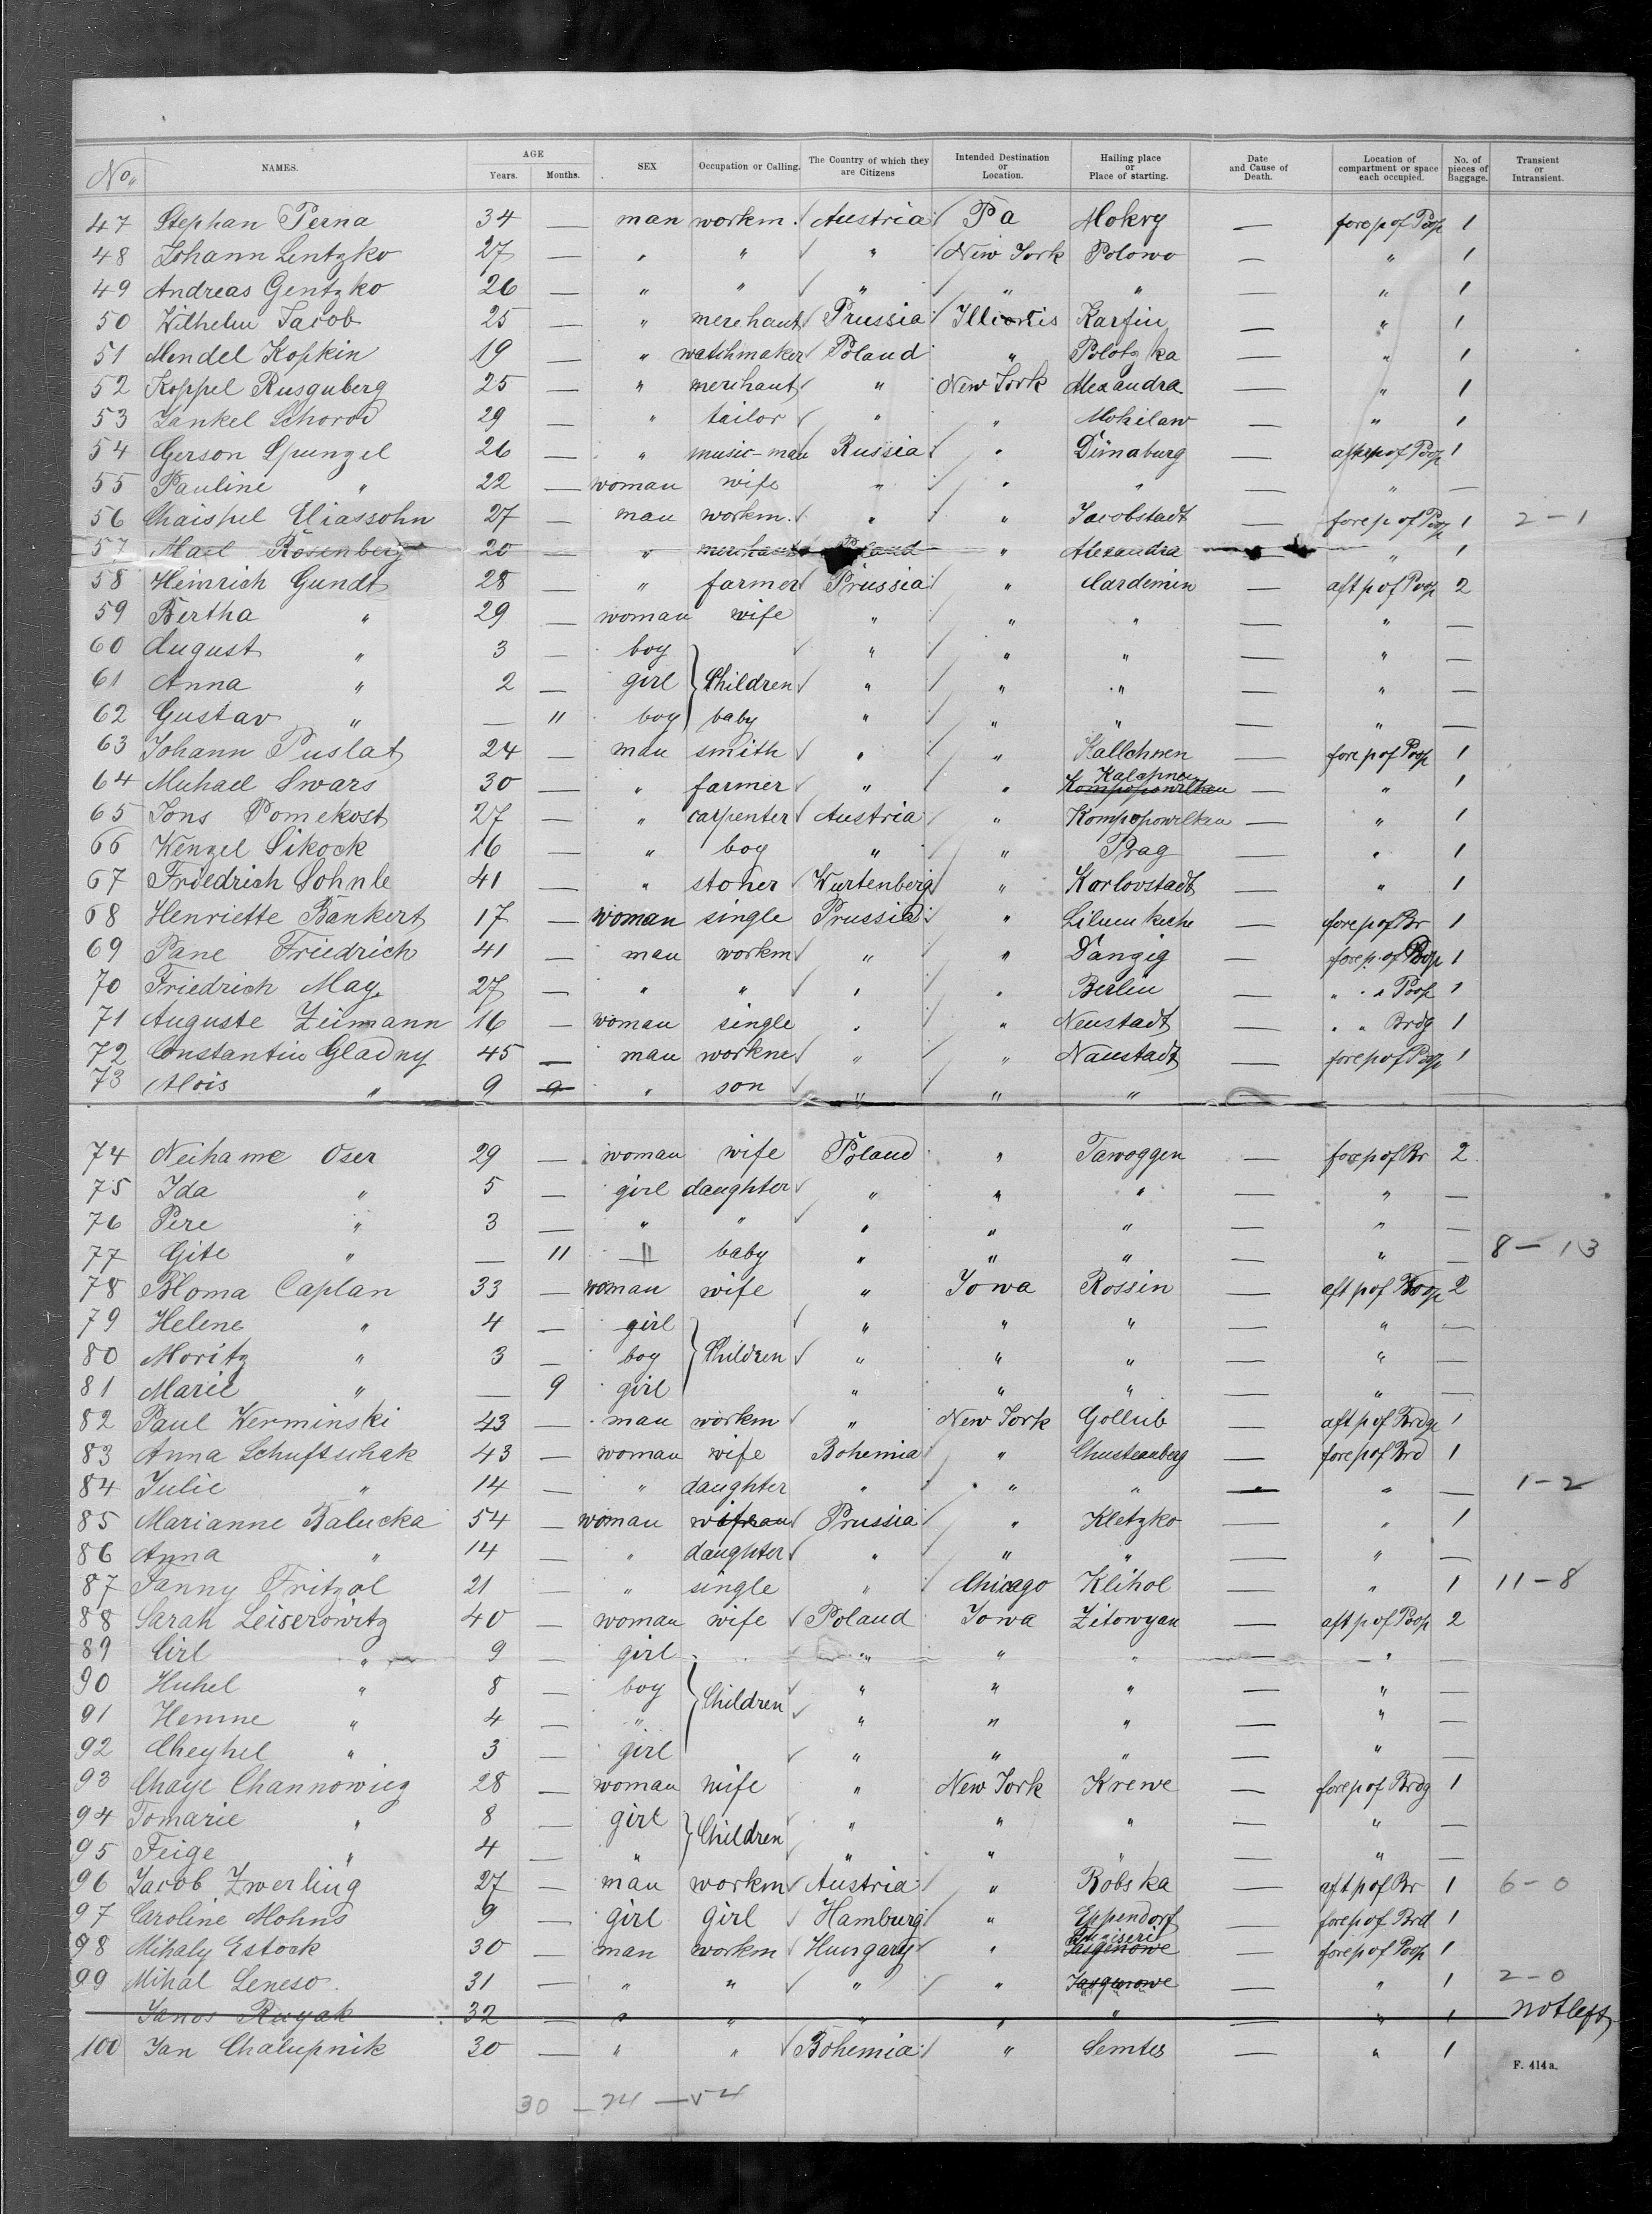 No. NAMES. AGE Years. Months. SEX Occupation or Calling. The Country of which they are Citizens Intended Destination or Location. Hailing place or Place of starting. Date and Cause of Death. Location of compartment or space each occupied. No. of pieces of Baggage. Transient or Intransient.
47 Stephan Perna 34 — man workm. Austria Pa Mokry — fore p of Poop 1
48 Johann Lentzko 27 — " " " New York Polowo — " 1
49 Andreas Gentzko 26 — " " " " " — " 1
50 Wilhelm Jacob 25 — " merchant Prussia Illionis Karfin — " 1
51 Mendel Kopkin 19 — " watchmaker Poland " Polotzka — " 1
52 Koppel Rusguberg 25 — " merchant " New York Alexandra — " 1
53 Jankel Schorod 29 — " tailor " " Mohilaw — " 1
54 Gerson Spungel 26 — " music-man Russia " Dünaburg — aft p of Poop 1
55 Pauline " 22 — woman wife " " " — " —
56 Chaispel Eliassohn 27 — man workm. " " Jacobstadt — fore p of Poop 1 2-1
57 Rosenberg 20 — " merchant Poland " Alexandra — " 1
58 Heinrich Gundt 28 — " farmer Prussia " Cardemin — aft p of Poop 2
59 Bertha " 29 — woman wife " " " — " —
60 August " 3 — boy " " " — " —
61 Anna " 2 — girl Children " " " — " —
62 Gustav " — 11 boy baby " " " — " —
63 Johann Puslat 24 — man smith " " Kallehnen — fore p of Poop 1
64 Michael Swars 30 — " farmer " " Kalehnen Kompopowilken — " 1
65 Jons Pomekost 27 — " carpenter Austria " Kompopowilken — " 1
66 Wenzel Sikock 16 — " boy " " Prag — " 1
67 Friedrich Sohnle 41 — " stoner Wurtenberg " Karlovstadt — " 1
68 Henriette Bankert 17 — woman single Prussia " — fore p of Br 1
69 Pane Friedrich 41 — man workm " " Danzig — fore p. of Poop 1
70 Friedrich May 27 — " " " " Berlin — " " " Poop 1
71 Auguste Zeimann 16 — woman single " " Neustadt — " " Brdg 1
72 Constantin Gladny 45 — man workm " " Naustadt — fore p of Poop 1
73 Alois " 9 9 " son " " " — —
74 Neihame Oser 29 — woman wife Poland " Tawoggen — fore p of Br 2
75 Ida " 5 — girl daughter " " " — " —
76 Pere " 3 — " " " " " — " —
77 Gite " — 11 " baby " " " — " — 8-13
78 Bloma Caplan 33 — woman wife " Iowa Rossin — aft p of Poop 2
79 Helene " 4 — girl " " " — " —
80 Moritz " 3 — boy Children " " " — " —
81 Marie " — 9 girl " " " — " —
82 Paul Werminski 43 — man workm " New York Gollub — aft p of Brdg 1
83 Anna Schuftschak 43 — woman wife Bohemia " Chusteauberg — fore p of Brd 1
84 Julie " 14 — " daughter " " " — " — 1-2
85 Marianne Balucka 54 — woman Prussia " Kletzko — " 1
86 Anna " 14 — " daughter " " " — " —
87 Fanny Fritzol 21 — " single " Chicago Klihol — " 1 11-8
88 Sarah Leiserowitz 40 — woman wife Poland Iowa Zitowyan — aft p of Poop 2
89 Cirl " 9 — girl " " " — " —
90 Huhel " 8 — boy " " " — " —
91 Hemne " 4 — " Children " " " — " —
92 Cheyhel " 3 — girl " " " — " —
93 Chaye Channowiez 28 — woman wife " New York Krewe — fore p of Brdg 1
94 Tomarie " 8 — girl " " " — " —
95 Feige " 4 — " Children " " " — " —
96 Jacob Zwerling 27 — man workm Austria " Robska — aft p of Br 1 6-0
97 Caroline Mohns 9 — girl girl Hamburg " Eppendorf — fore p of Brd 1
98 Mihaly Estock 30 — man workm Hungary " Jasgenowe — fore p of Poop 1
99 Mihal Leneso 31 — " " " " Jasgenowe — " 1 2-0
Janos Ruyak 32 — " " " " " — " 1 not left
100 Jan Chalupnik 30 — " " Bohemia " Semtes — " 1
F. 414a.
30 - 24 - 54